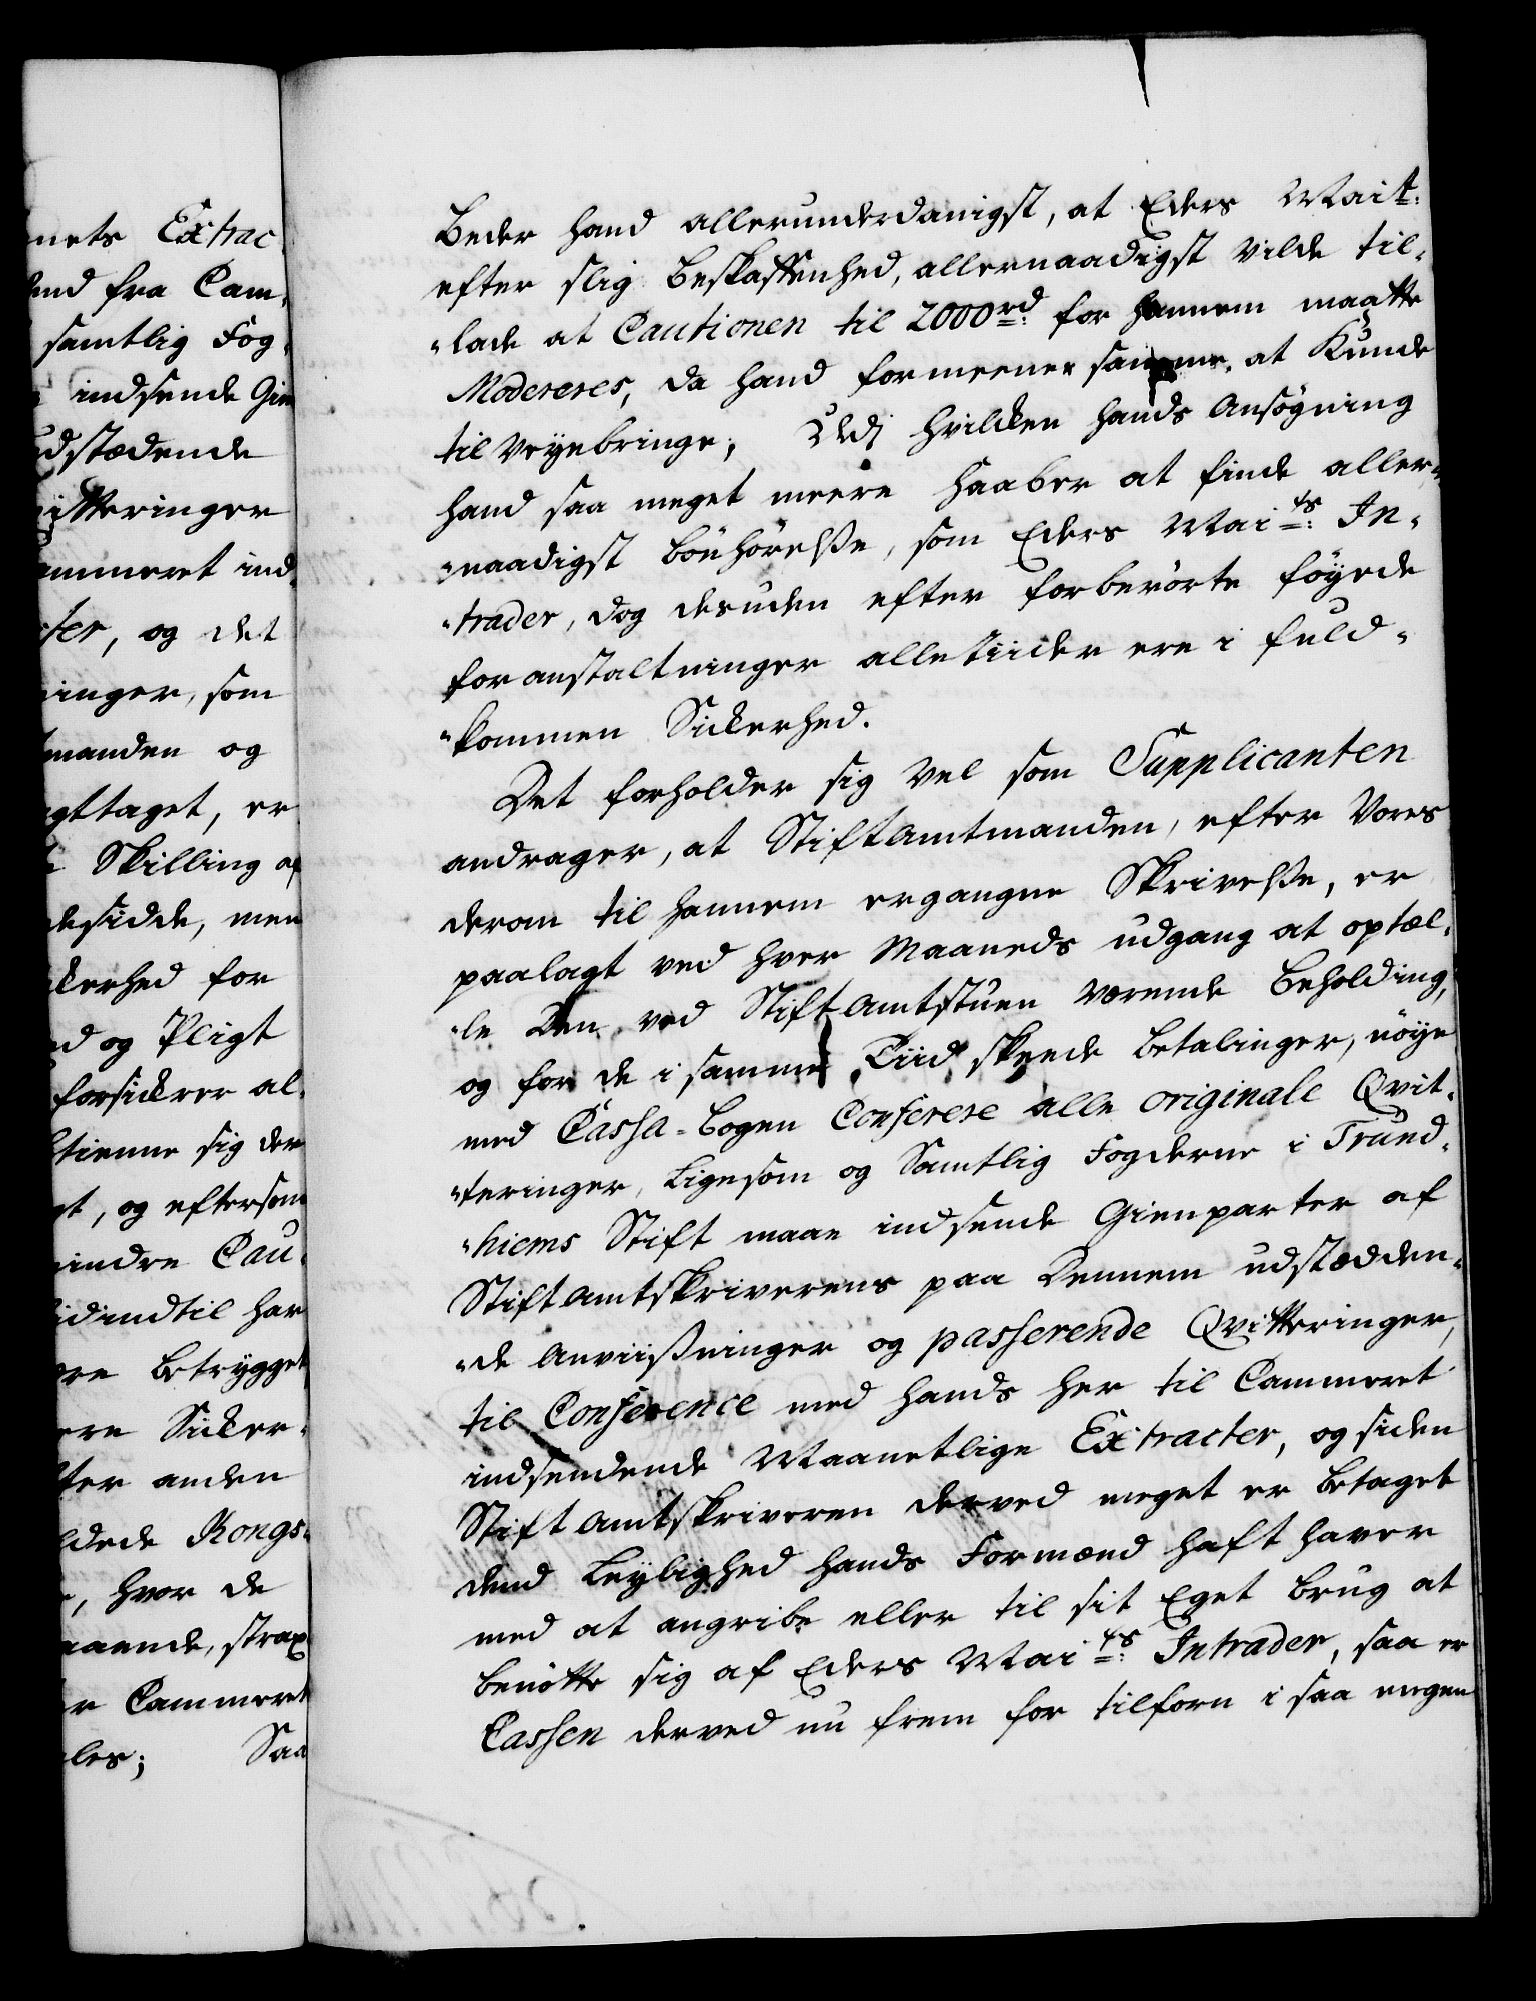 nets Extrac
end fra Cam-
samtlig Fog-
indsende Gien
udstædende
vitteringer
ammeret ind-
ter, og det
ninger, som
manden og
agttaget, er
Skilling af
desidde, men
kkerhed for
ed og Pligt
forsickrer al-
tienne sig der
gt, og eftersom
mindre Cau-
tidindtil har
ere betrygget
ere Sicker-
ter anden
ldede Kongs-
, hvor de
aaende, strax
er Cammeret
les; Saa
Beder hand allerunderdanigst, at Eders Mait:
efter slig beskaffenhed, allernaadigst vilde til-
"lade at Cautionen til 2000 rd: for hannem maatte
Modereres, da hand formeener samme at Kunde
tilveyebringe; Udj hvilken hands Ansøgning
hand saa meget meere haaber at finde aller-
"naadigst bønhørelsse, som Eders Mai ts: In-
"trader, dog desuden efter forberørte føyede
foranstaltninger alletiider ere i fuld-
"kommen Sickerhed.
Det forholder sig vel som Supplicanten
andrager, at Stiftamtmanden, efter Vores
derom til hannem ergangne Skrivelsse, er
paalagt ved hver Maaneds udgang at optæl-
"le Den ved Stiftamtstuen værende beholding,
og for de i samme Tiid skeede betalinger, nøye
med Cassa-bogen Conferere alle originale Qvit-
"teringer, Ligesom og Samtlig Fogderne i Trund-
"hiems Stift maae indsende Gienparter af
Stiftamtskriverens paa Dennem udstædden-
"de Anviisninger og passerende Qvitteringer,
til Conference med hands her til Cammeret
indsendende Maanetlige Extracter, og siden
Stiftamtskriveren derved meget er betaget
dend Leylighed hands Formænd haft haver
med at angribe eller til sit Eget brug at
benøtte sig af Eders Mai ts: Intrader, saa er
Cassen derved nu frem for tilforn i saa megen